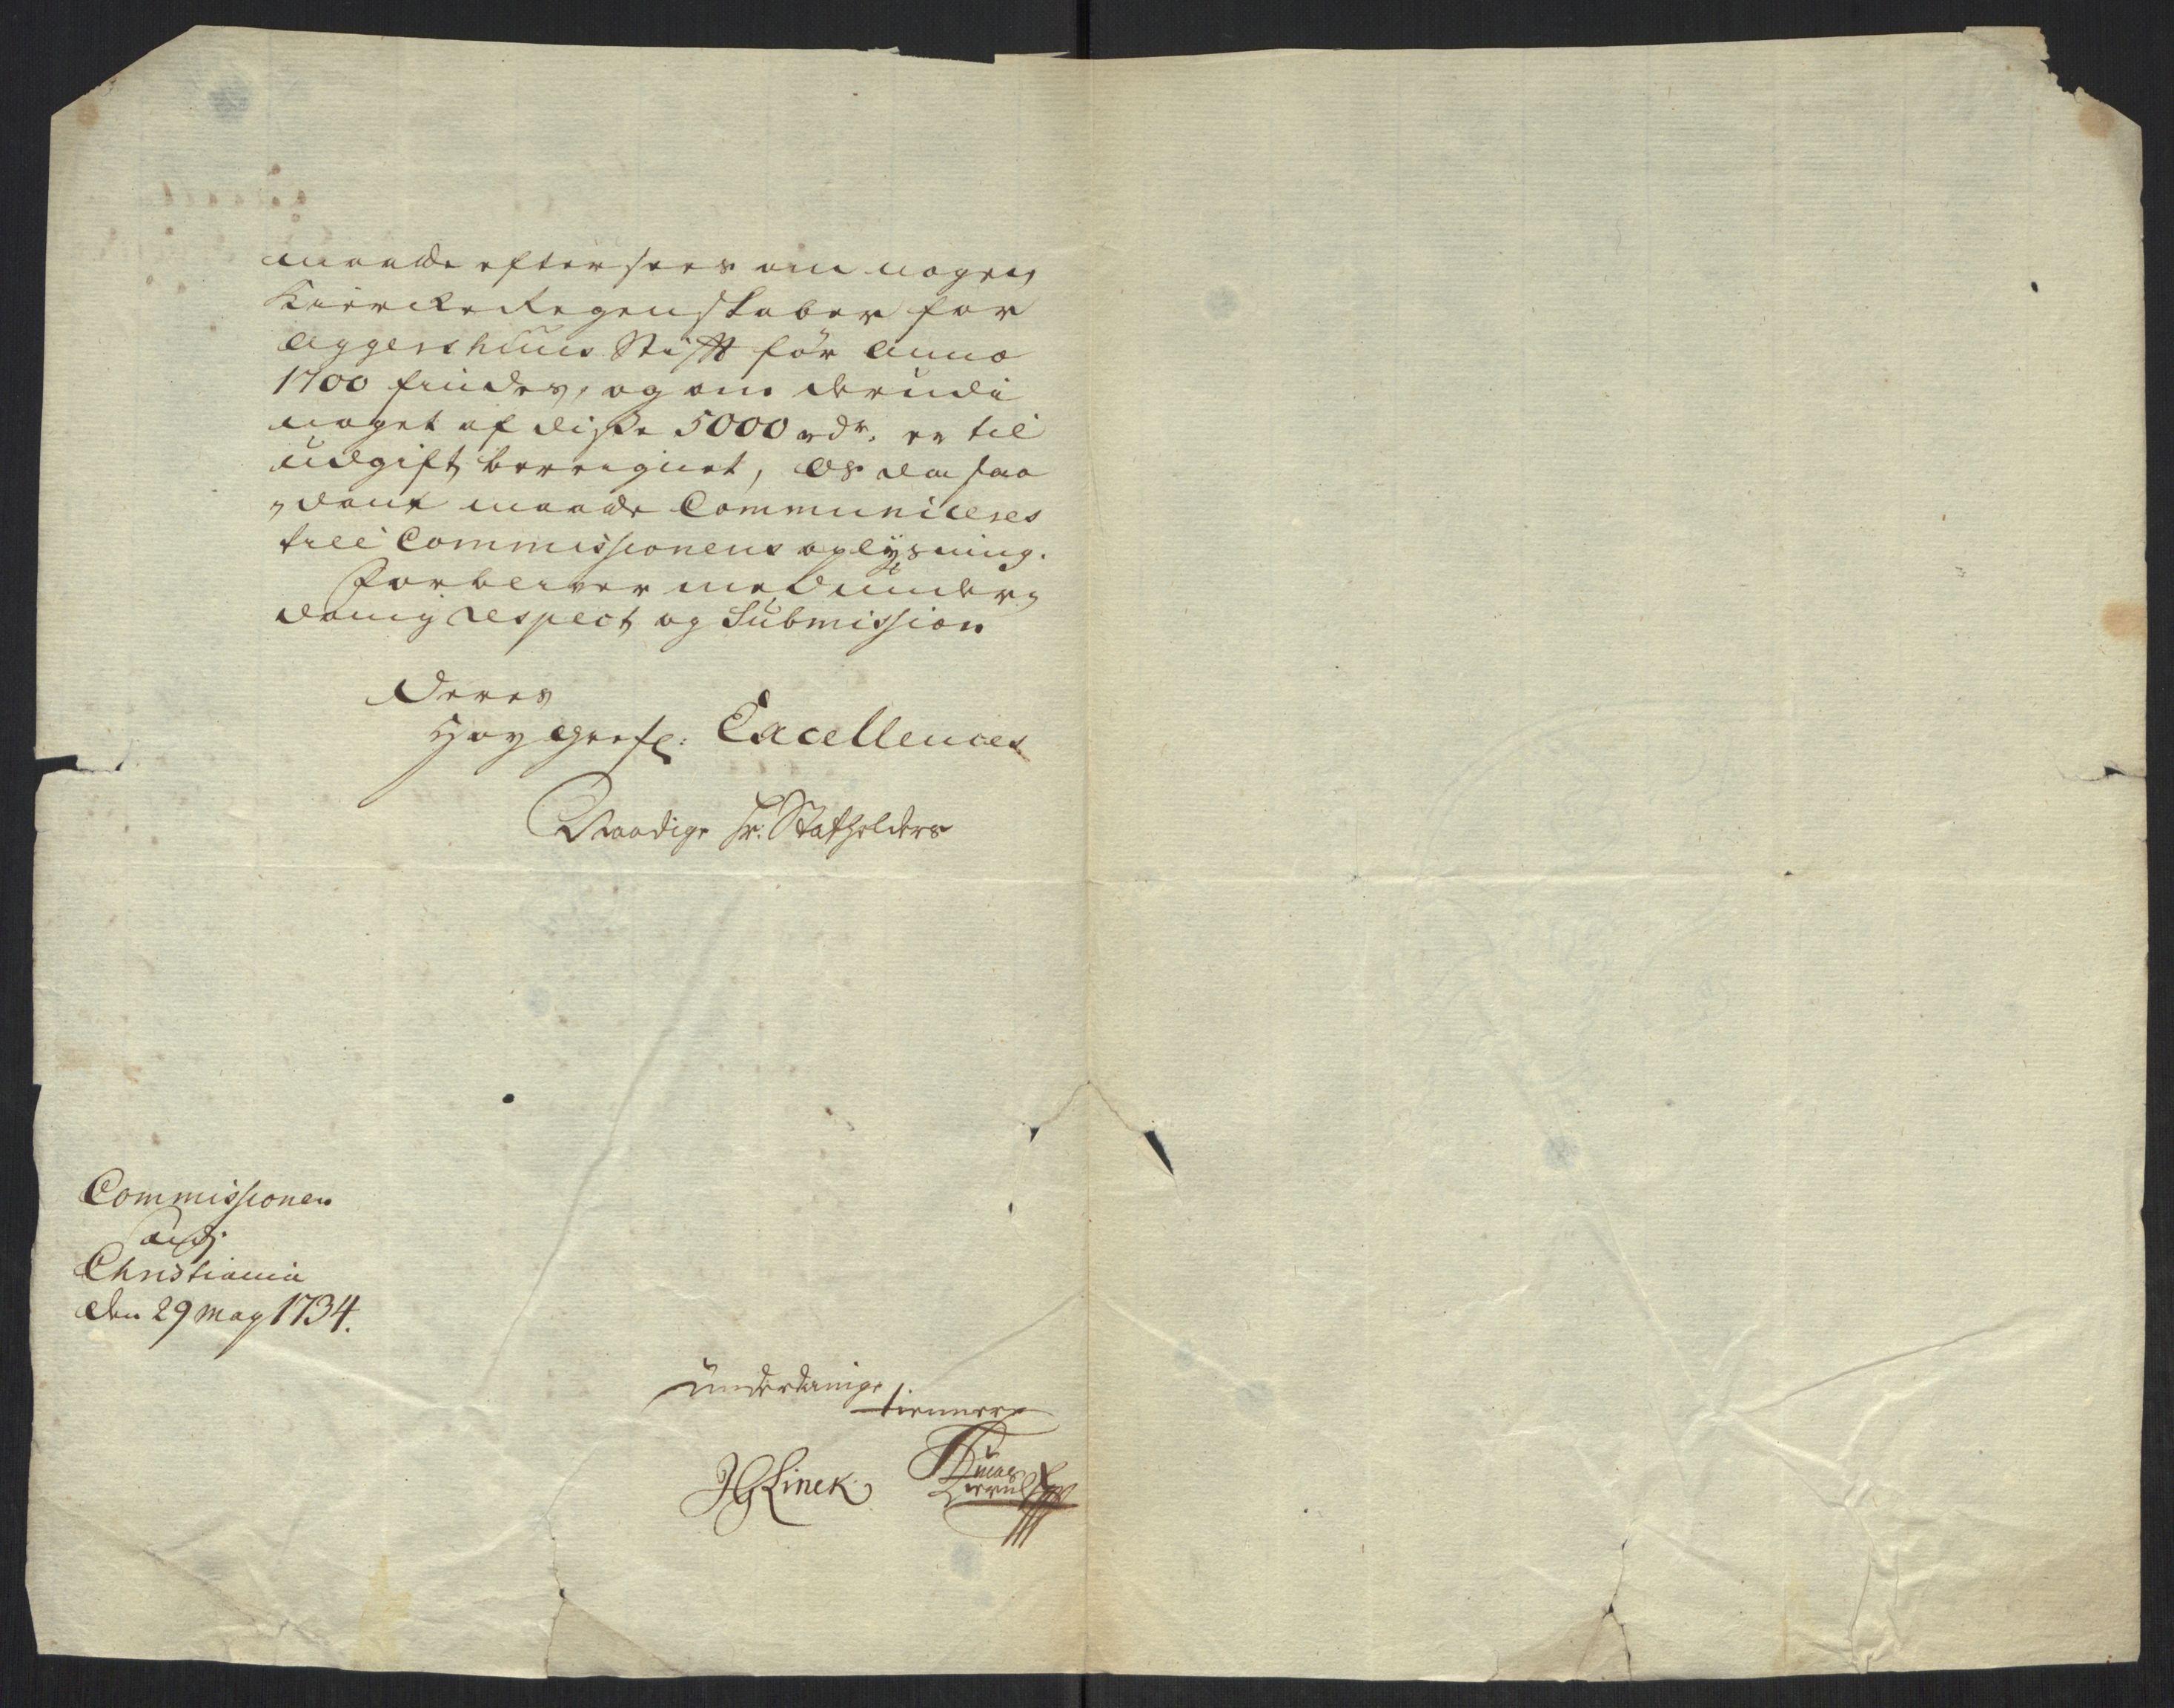 maatte efftersees om nogen
KiercheRegenskaber for
Aggershuus Stifft før Anno
1700 findes, og om derudi
noget af disse 5000 rdr. er til
udgift bereignet, Os da saa
dant maatte Communiceres
till Commissionens oplysning.
Forbliver med under-
danig Respect og Submission
Deres
Høy Grefl: Excellences
Naadige Hr. Statholders
Commissionen
Christiania
den 29 May 1734.
Underdanige
tiennere
JGLinck